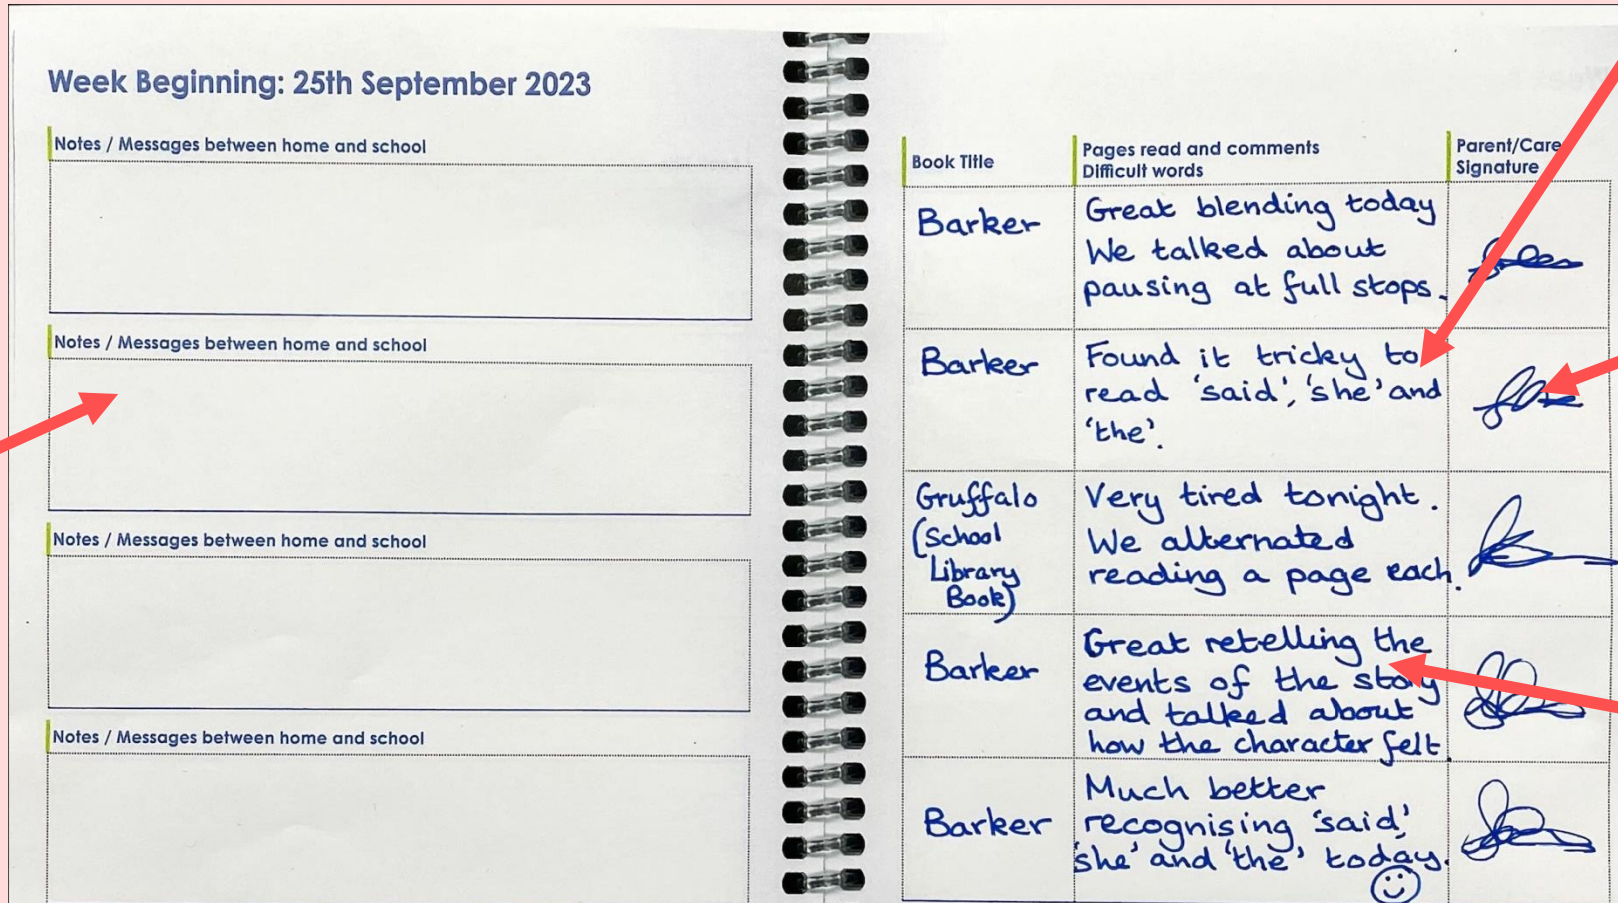 Week Beginning: 25th September 2023
Notes / Messages between home and school
Notes / Messages between home and school
Notes / Messages between home and school
Notes / Messages between home and school
Book Title
Pages read and comments
Difficult words
Parent/Care
Signature
Barker
Great blending today
We talked about
pausing at full stops.
Barker
Found it tricky to
read 'said', 'she' and
'the'.
Gruffalo
(School
Library
Book)
Very tired tonight.
We alternated
reading a page each.
Barker
Great retelling the
events of the story
and talked about
how the character felt.
Barker
Much better
recognising 'said',
'she' and 'the' today.